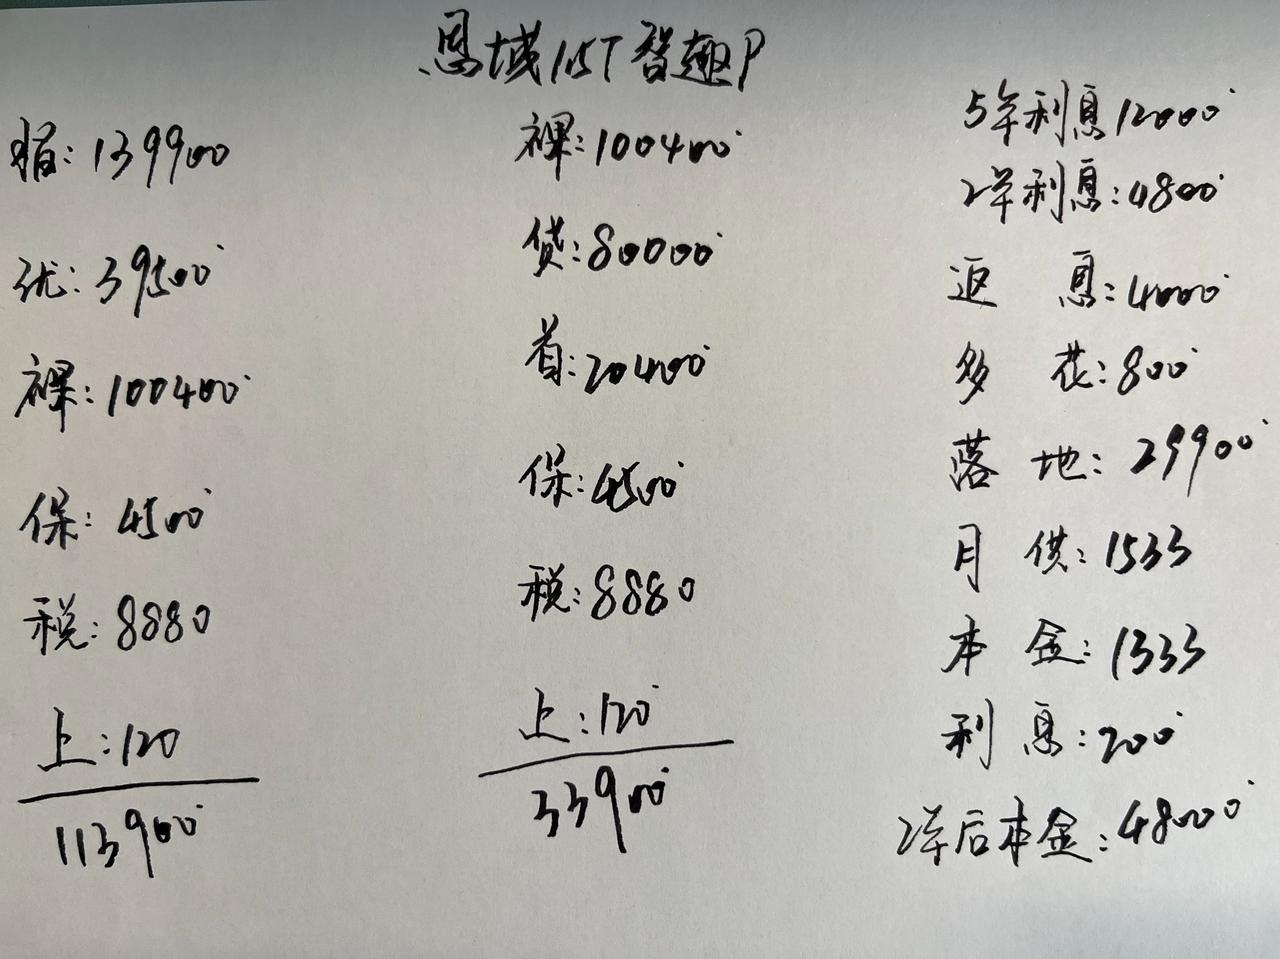 思域15T智趣P
指:139900
优:39500
裸:100400
保:4500
税:8880
上:120
113900
裸:100400
贷:80000
首:20400
保:4500
税:8880
上:120
33900
5年利息12000
2年利息:4800
返息:4000
多花:800
落地:29900
月供:1533
本金:1333
利息:200
2年后本金:48000